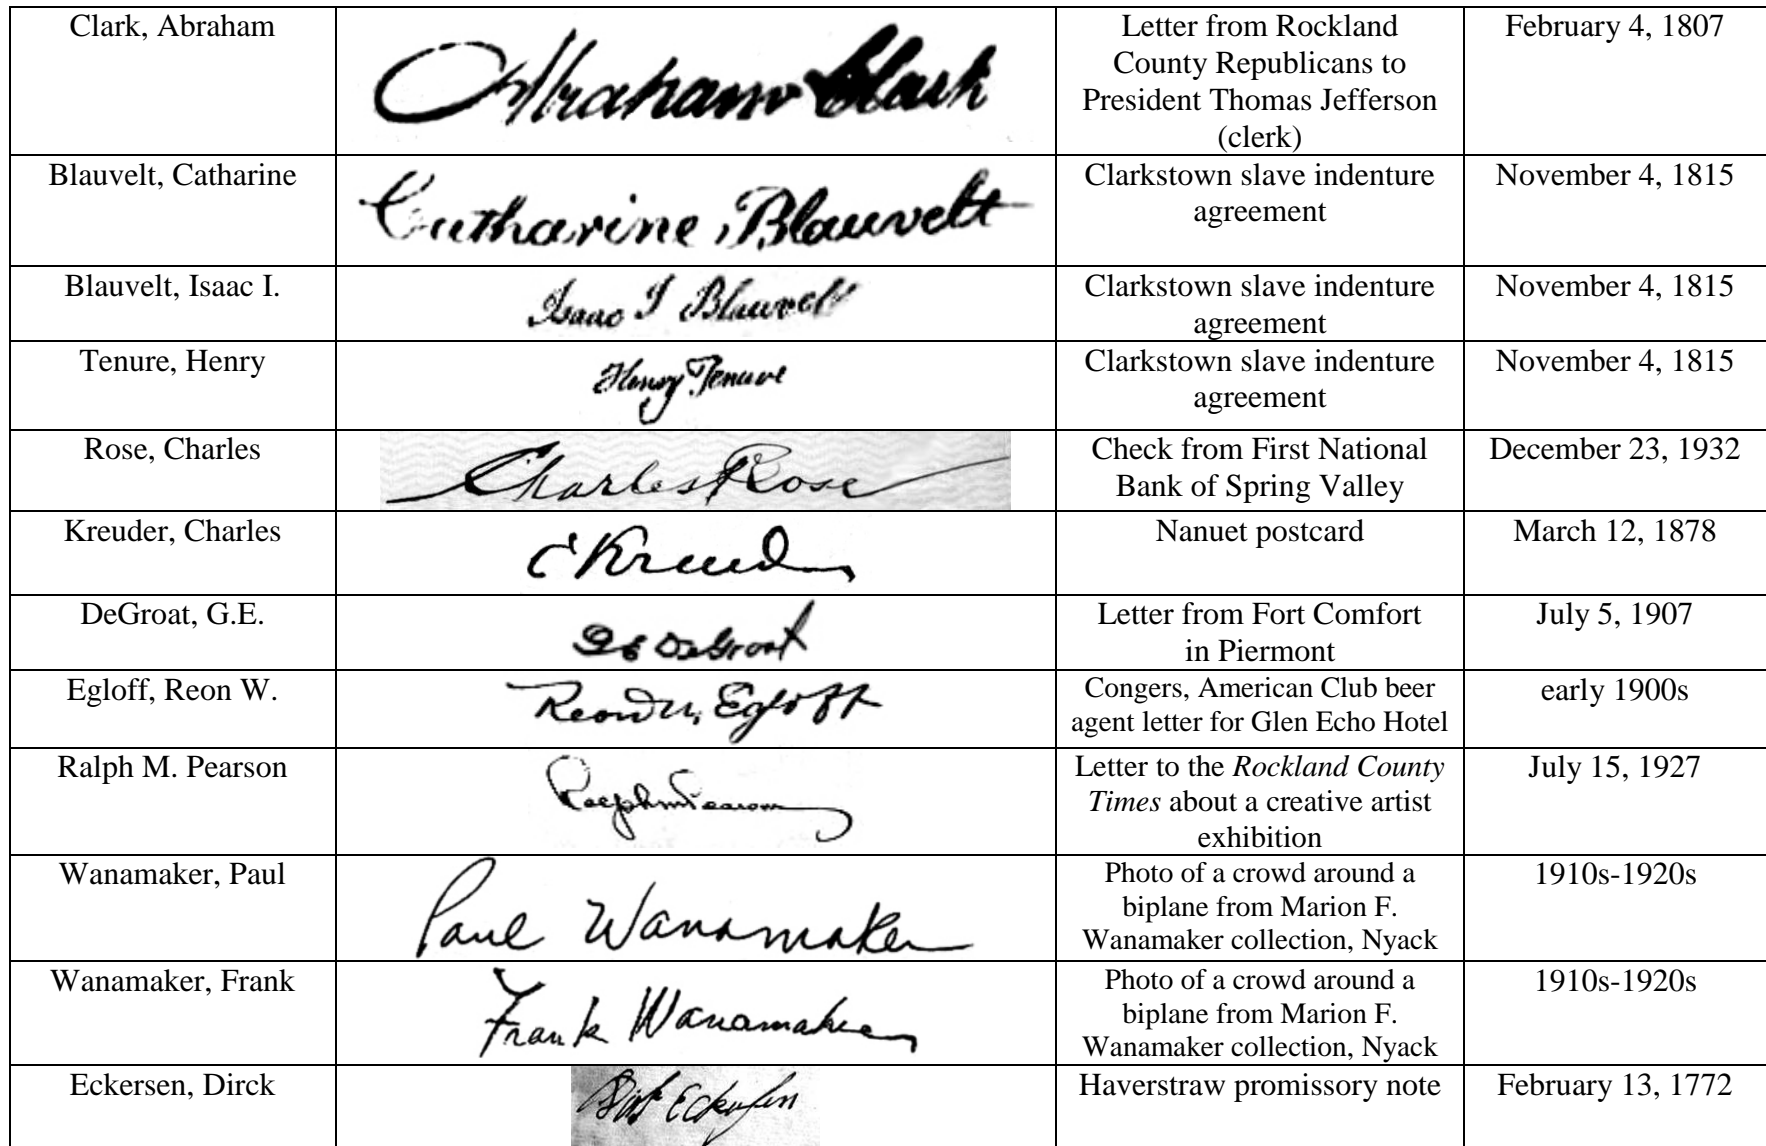 Clark, Abraham
Abraham Clark
Letter from Rockland
County Republicans to
President Thomas Jefferson
(clerk)
February 4, 1807
Blauvelt, Catharine
Catharine Blauvelt
Clarkstown slave indenture
agreement
November 4, 1815
Blauvelt, Isaac I.
Isaac I Blauvelt
Clarkstown slave indenture
agreement
November 4, 1815
Tenure, Henry
Henry Tenure
Clarkstown slave indenture
agreement
November 4, 1815
Rose, Charles
Charles Rose
Check from First National
Bank of Spring Valley
December 23, 1932
Kreuder, Charles
C Kreud
Nanuet postcard
March 12, 1878
DeGroat, G.E.
GE DeGroat
Letter from Fort Comfort
in Piermont
July 5, 1907
Egloff, Reon W.
Reon W. Egloff
Congers, American Club beer
agent letter for Glen Echo Hotel
early 1900s
Ralph M. Pearson
Ralph M Pearson
Letter to the Rockland County
Times about a creative artist
exhibition
July 15, 1927
Wanamaker, Paul
Paul Wanamaker
Photo of a crowd around a
biplane from Marion F.
Wanamaker collection, Nyack
1910s-1920s
Wanamaker, Frank
Frank Wanamaker
Photo of a crowd around a
biplane from Marion F.
Wanamaker collection, Nyack
1910s-1920s
Eckersen, Dirck
Dirk Eckersen
Haverstraw promissory note
February 13, 1772